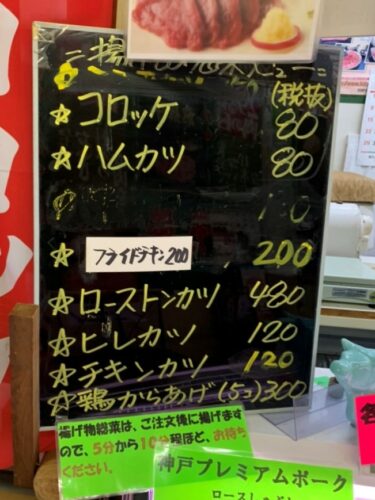 (税抜)
☆コロッケ 80
☆ハムカツ 80
☆ フライドチキン200 200
☆ローストンカツ 480
☆ヒレカツ 120
☆チキンカツ 120
☆鶏からあげ(5コ)300
揚げ物総菜は、ご注文後に揚げます
ので、5分から10分程ほど、お待ち
ください。
神戸プレミアムポーク